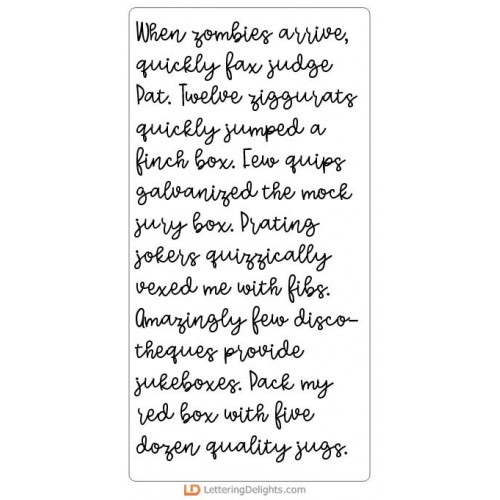 When zombies arrive,
quickly fax judge
Pat. Twelve ziggurats
quickly jumped a
finch box. Few quips
galvanized the mock
jury box. Prating
jokers quizzically
vexed me with fibs.
Amazingly few disco-
theques provide
jukeboxes. Pack my
red box with five
dozen quality jugs.
LD LetteringDelights.com